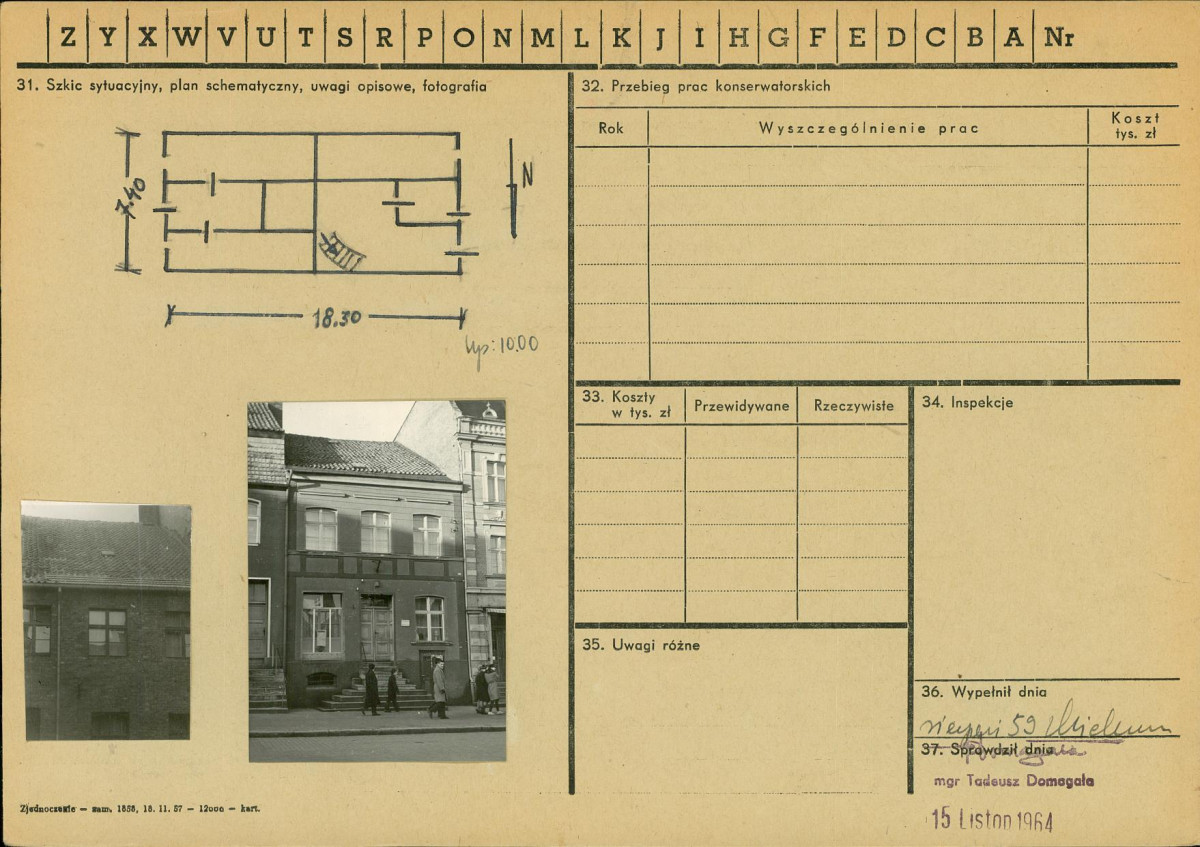 Z Y X W V U T S R P O N M L K J I H G F E D C B A Nr
31. Szkic sytuacyjny, plan schematyczny, uwagi opisowe, fotografia
7.40
N
18.30
Wys: 10.00
Zjednoczenie — zam. 1858, 18. 11. 57 — 12000 — kart.
32. Przebieg prac konserwatorskich
Rok
Wyszczególnienie prac
Koszt
tys. zł
33. Koszty
w tys. zł
Przewidywane
Rzeczywiste
34. Inspekcje
35. Uwagi różne
36. Wypełnił dnia
sierpień 59
37. Sprawdził dnia
mgr Tadeusz Domagała
15 Listop 1964